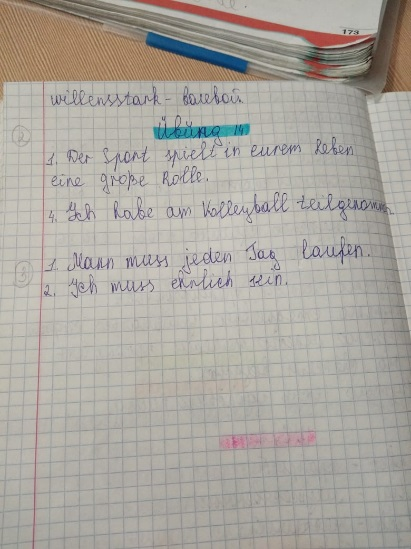 173
willensstark - волевой
Übung 14
2
1. Der Sport spielt in eurem Leben
eine große Rolle.
4. Ich habe am Volleyball teilgenommen
3
1. Mann muss jeden Tag laufen.
2. Ich muss ehrlich sein.